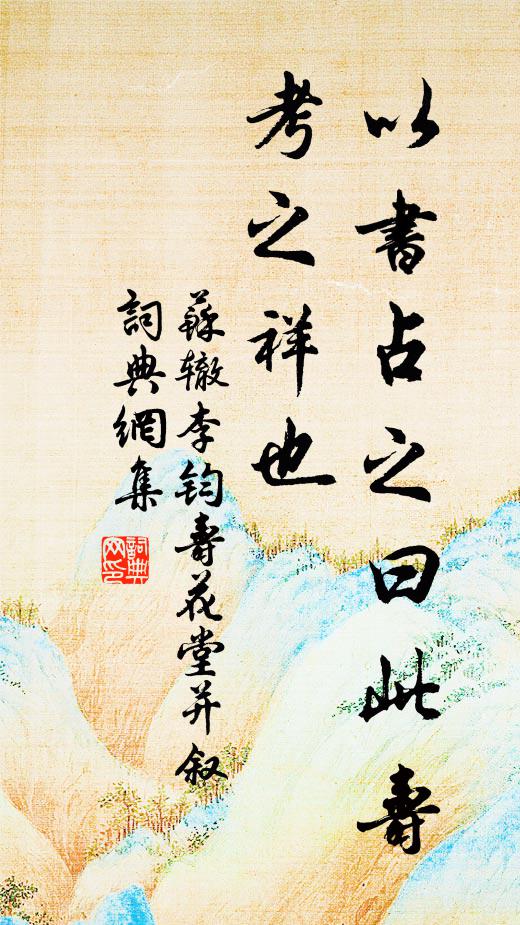 以書占之曰此壽
考之祥也
蘇辙李鈞壽花堂并叙
詞典網集
詞典
网印